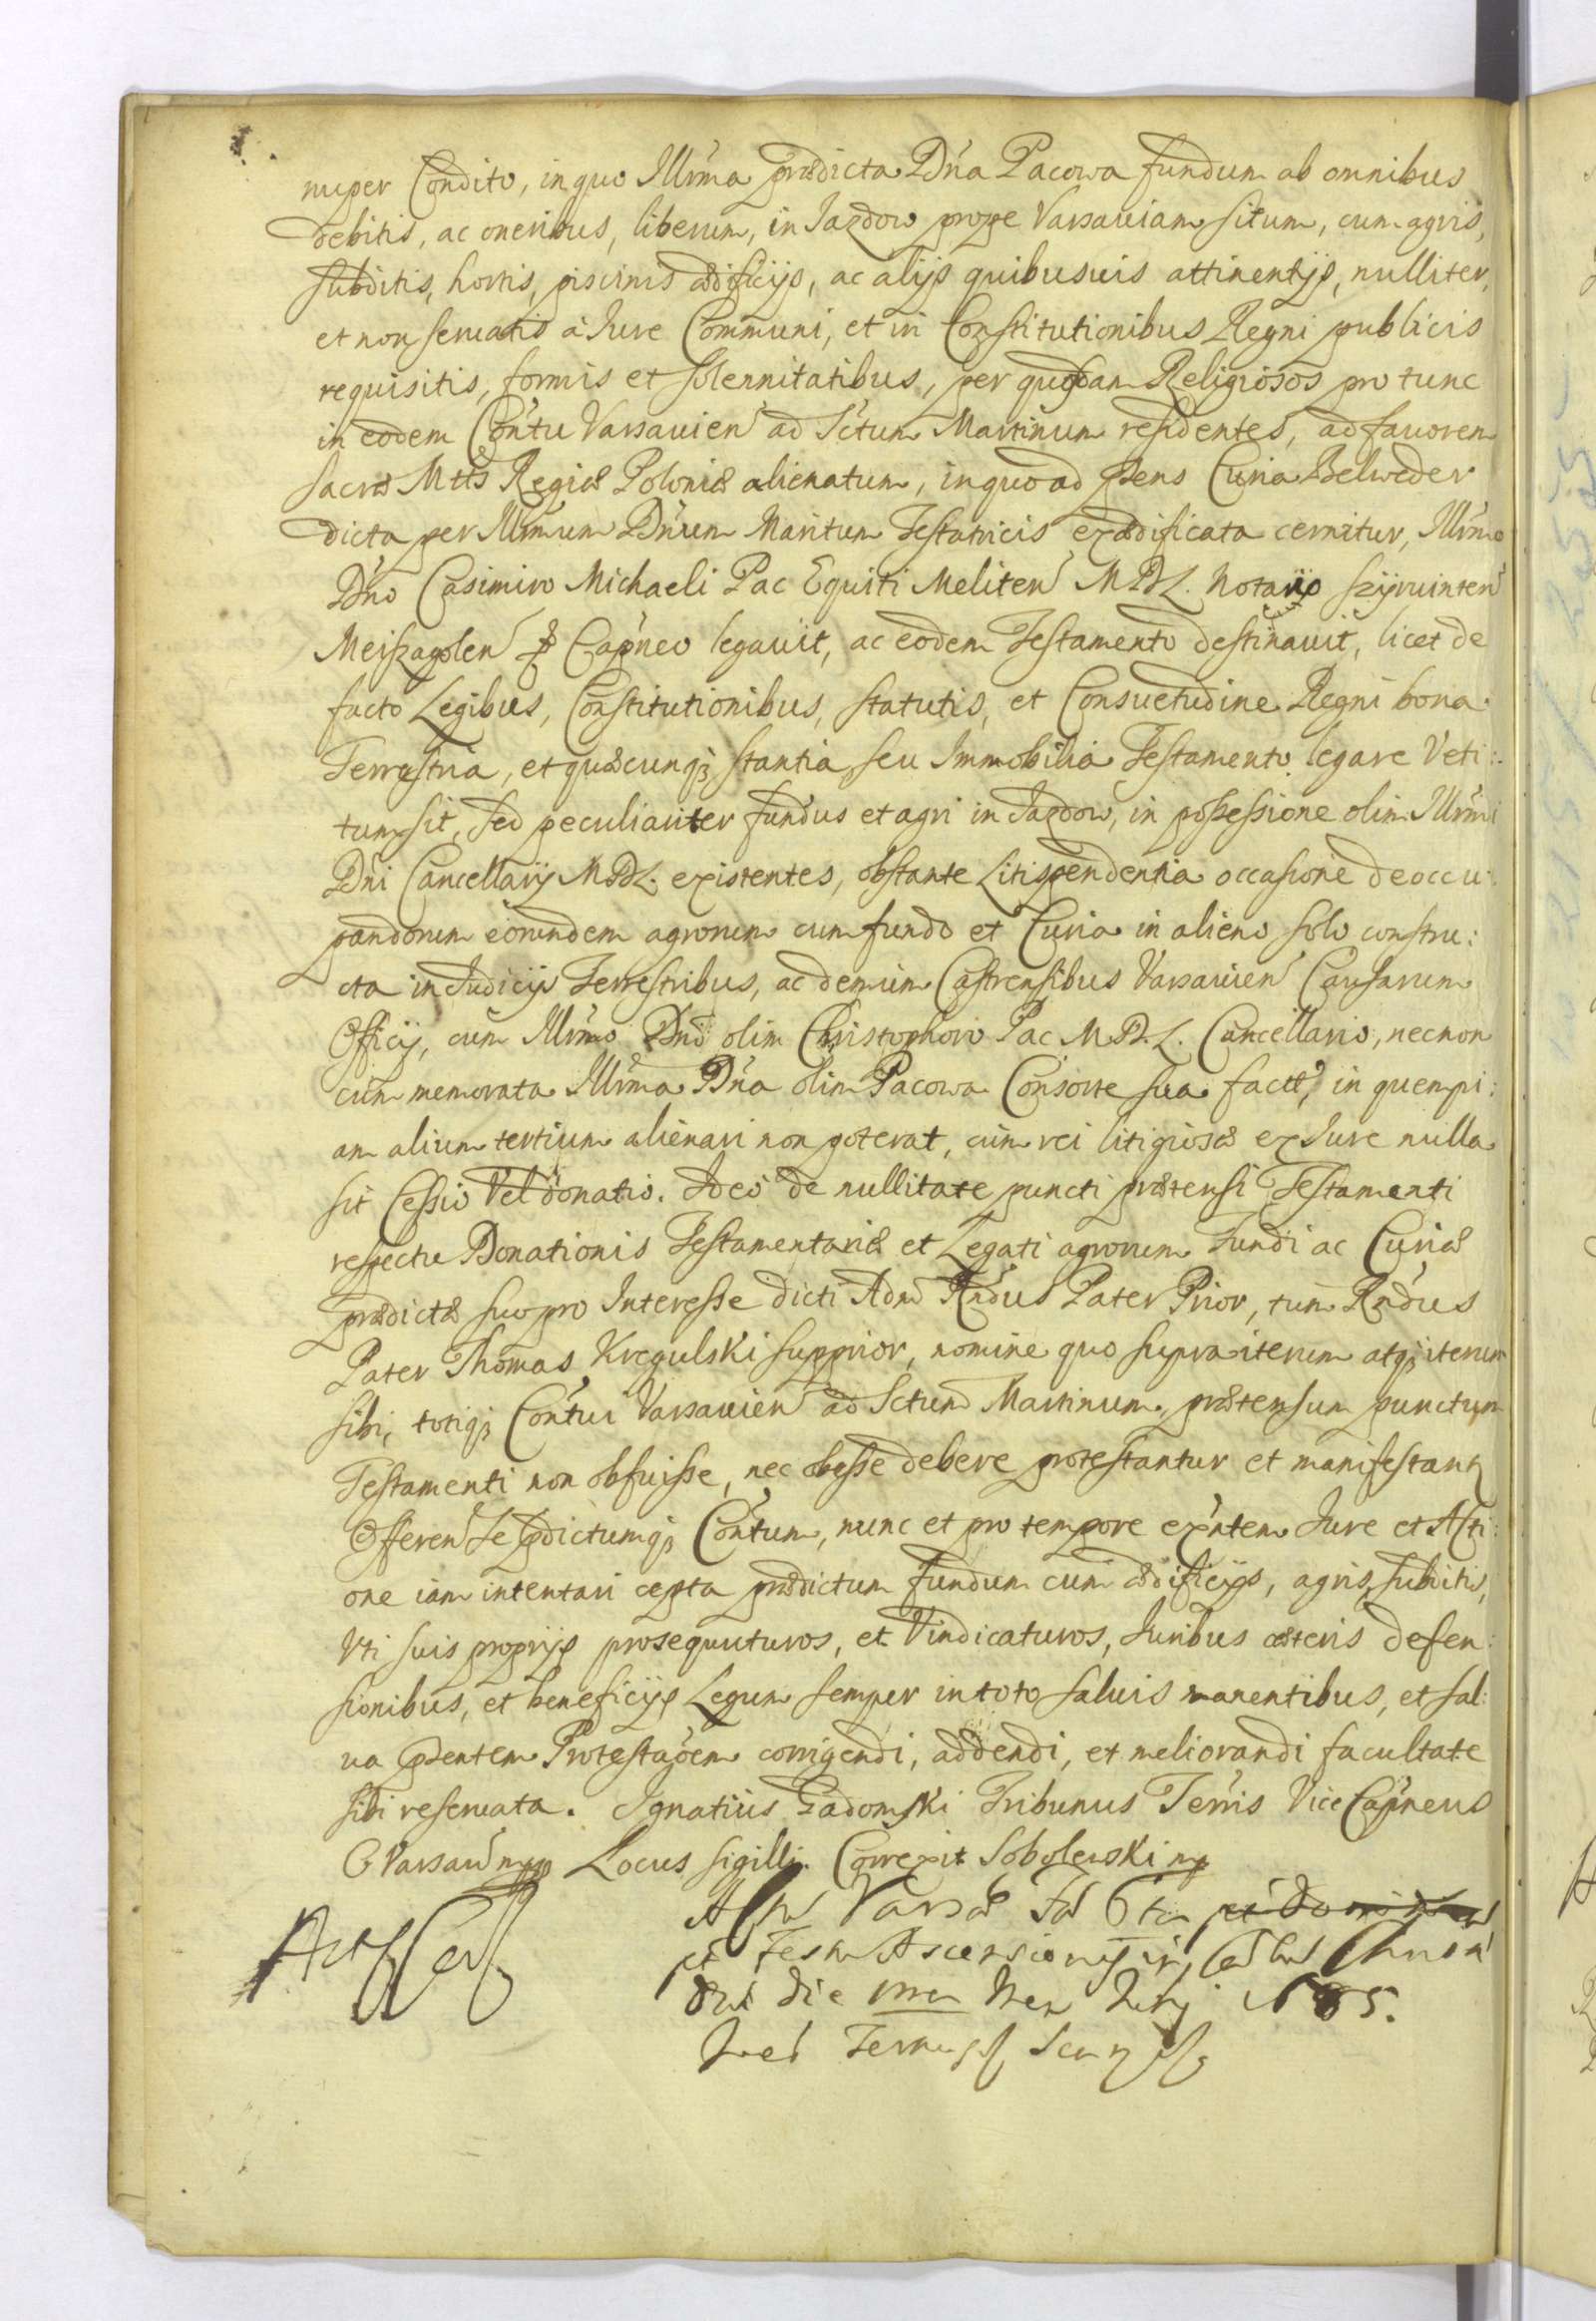 nuper Condito, in quo Illrma prædicta Dna Pacowa fundum ab omnibus
debitis, ac oneribus, liberum, in Jazdow prope Varsauiam situm, cum agris,
subditis, hortis, piscinis ædificijs, ac alijs quibusuis attinentijs, nulliter,
et non seruatis à Jure Communi, et in Constitutionibus Regni publicis
requisitis, formis et solennitatibus, per quosdam Religiosos pro tunc
in eodem Contu Varsauien ad Sctum Martinum residentes, ad fauorem
sacræ Mttis Regiæ Poloniæ alienatum, in quo ad pñs Curia Belweder
dicta per Illrmum Dnum Maritum Testatricis exædificata cernitur, Illrmo
Dno Casimiro Michaeli Pac Equiti Meliten M.D.L. Notario Szyruinten
Meiszagolen Capneo legauit, ac eodem Testamento destinauit, licet de
facto Legibus, Constitutionibus, statutis, et Consuetudine Regni bona
Terrestria, et quæcunq; stantia seu Immobilia Testamento legare Veti:
tum sit, sed peculiariter fundus et agri in Jazdow, in possessione olim Illrmi
Dni Cancellarij M.D.L. existentes, obstante Litispendentia occasione deoccu:
pandorum eorundem agrorum cum fundo et Curia in alieno solo constru:
cta in Judicijs Terrestribus, ac demum Castrensibus Varsauien Causarum
Officij, cum Illrmo Dno olim Christophoro Pac M.D.L. Cancellario, necnon
cum memorata Illrma Dna olim Pacowa Consorte sua factæ, in quempi:
am alium tertium alienari non poterat, cum rei litigiosæ ex Jure nulla
sit Cessio Vel donatio. Ideo de nullitate puncti prætensi Testamenti
respectu Donationis Testamentariæ et Legati agrorum Fundi ac Curiæ
prædictæ suo pro Interesse dicti Adm Rndus Pater Prior, tum Rndus
Pater Thomas Kregulski supprior, nomine quo supra iterum atq; iterum
sibi, totiq; Contui Varsauien ad Sctum Martinum, prætensum punctum
Testamenti non obfuisse, nec obesse debere protestantur et manifestant,
Offeren Se pdictumq; Contum, nunc et pro tempore exntem Jure et Acti:
one iam intentari cepta prædictum fundum cum ædificijs, agris, subditis,
Vti suis proprijs prosequuturos, et Vindicaturos, Juribus cæteris defen:
sionibus, et beneficijs Legum semper in toto saluis manentibus, et sal:
ua pñtem Protestaõem corrigendi, addendi, et meliorandi facultate
sibi reseruata. Ignatius Gadomski Tribunus Terris Vice Capneus
C Varsauien mpp Locus sigilli. Correxit Sobolewski mp
Varsæ
Festum Ascensionis
die 1685.